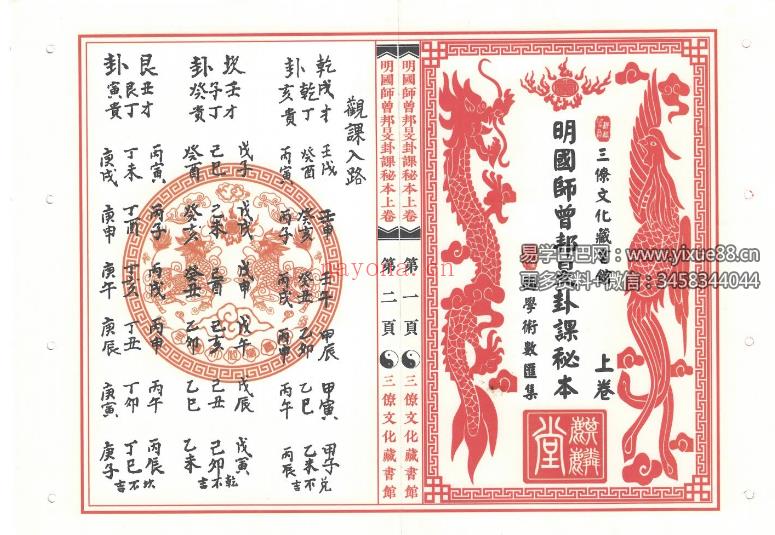 三僚文化藏書館
明國師曾邦旻卦課秘本
上卷
學術數匯集
麒麟堂
易学巴巴网：www.yixue88.cn
更多资料+微信：3458344044
明國師曾邦旻卦課秘本上卷 第一頁 三僚文化藏書館
明國師曾邦旻卦課秘本上卷 第二頁 三僚文化藏書館
觀課入路
乾戌才 壬戌 壬申 壬午 甲辰 甲寅 甲子兌
乾丁 癸酉 癸亥 癸丑 乙卯 乙巳 乙未不
卦亥貴 丙寅 丙子 丙戌 丙申 丙午 丙辰吉
坎壬才 戊子 戊戌 戊申 戊午 戊辰 戊寅乾
子丁 己巳 己未 己酉 己亥 己丑 己卯不
卦癸貴 癸酉 癸亥 癸丑 乙卯 乙巳 乙未吉
艮丑才 丙寅 丙子 丙戌 丙申 丙午 丙辰坎
艮丁 丁未 丁酉 丁亥 丁丑 丁卯 丁巳不
卦寅貴 庚戌 庚申 庚午 庚辰 庚寅 庚子吉
nayona.cn